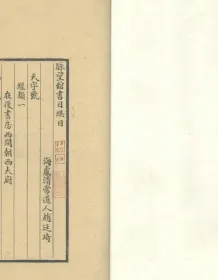 脉望館書目總目
海虞清常道人趙廷琦
天字號
經類一
在後書房西間朝西大廚